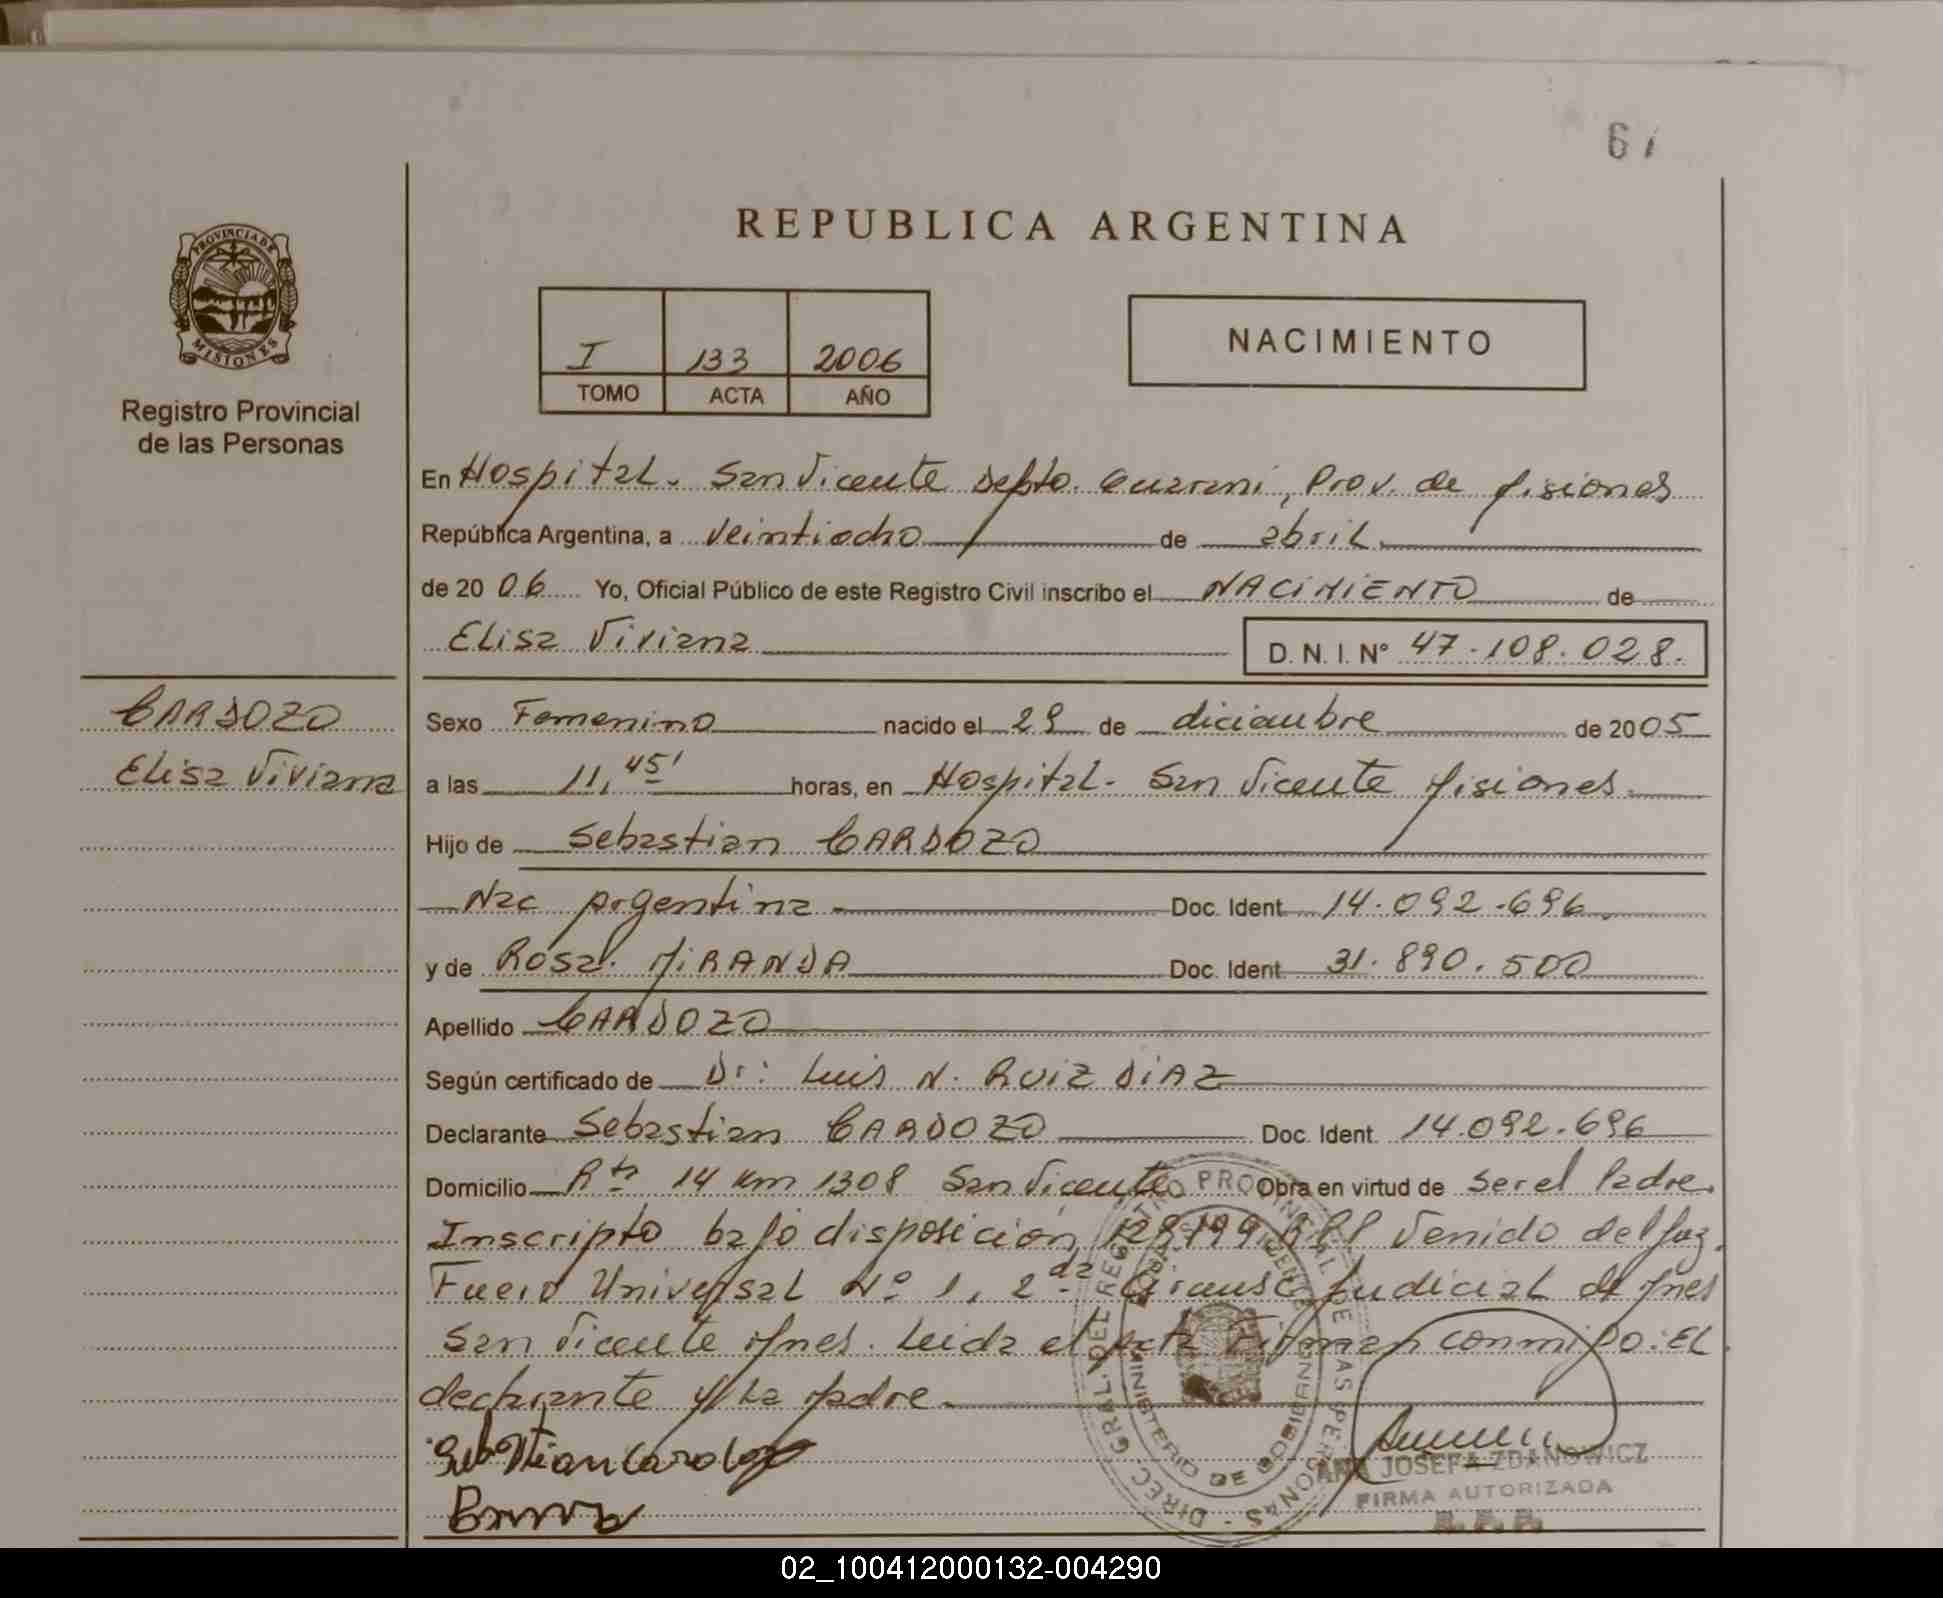 61
REPUBLICA ARGENTINA
PROVINCIA DE
MISIONES
Registro Provincial
de las Personas
I 133 2006
TOMO ACTA AÑO
NACIMIENTO
En Hospital. San Vicente Depto. Guarani, Prov. de Misiones
República Argentina, a veintiocho de abril.
de 2006 Yo, Oficial Público de este Registro Civil inscribo el NACIMIENTO de
Elisa Viviana D. N. I. N° 47.108.028.
CARDOZO
Elisa Viviana
Sexo Femenino nacido el 29 de diciembre de 2005
a las 11,45' horas, en Hospital. San Vicente Misiones.
Hijo de Sebastian CARDOZO
Nac Argentina Doc. Ident. 14.092.696.
y de Rosa MIRANDA Doc. Ident. 31.890.500
Apellido CARDOZO
Según certificado de Dr: Luis N. RUIZ DIAZ
Declarante Sebastian CARDOZO Doc. Ident. 14.092.696
Domicilio Rta 14 Km 1308 San Vicente Obra en virtud de ser el Padre.
Inscripto bajo disposición RPP Venido del Juz.
Fuero Universal N° 1, 2da Circunsc Judicial de Mnes
San Vicente Mnes. Leida el acta Firman conmigo: EL
declarante y La Madre.
DIREC. GRAL. DEL REGISTRO PROVINCIAL DE LAS PERSONAS
MINISTERIO DE GOBIERNO
ANA JOSEFA ZDANOWICZ
FIRMA AUTORIZADA
R.P.P.
02_100412000132-004290